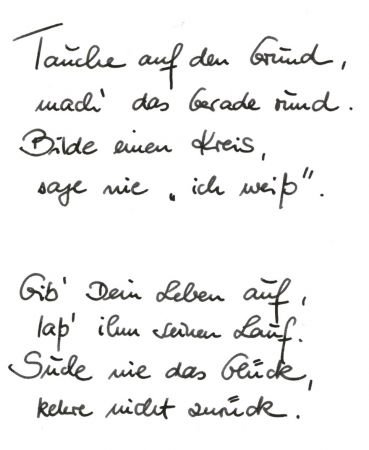 Tauche auf den Grund,
mach' das Gerade rund.
Bilde einen Kreis,
sage nie „ich weiß".
Gib' Dein Leben auf,
laß' ihm seinen Lauf.
Suche nie das Glück,
kehre nicht zurück.